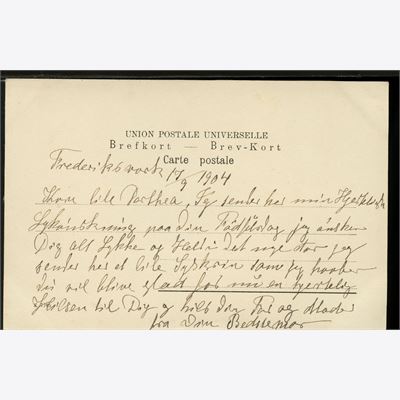 UNION POSTALE UNIVERSELLE
Brefkort — Brev-Kort
Carte postale
Frederiksværk 17/9 1904
Kjære lille Dorthea, Jeg sender her min Hjerteligste
Lykønskning paa din Fødselsdag jeg ønsker
Dig alt Lykke og Held i det nye Aar jeg
sender her et lille Syskrin som jeg haaber
du vil blive glad for nu en hjertelig
Hilsen til Dig og hils dog Far og Moder
fra Din Bedstemor